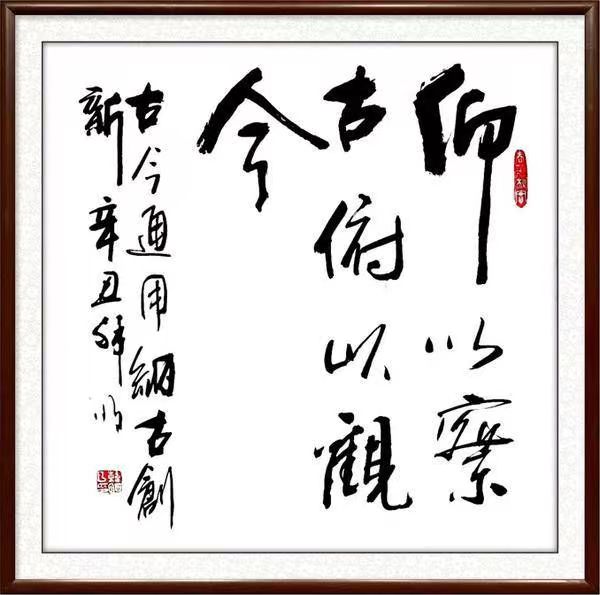 仰以察
古俯以觀
今
古今通用納古創
新辛丑